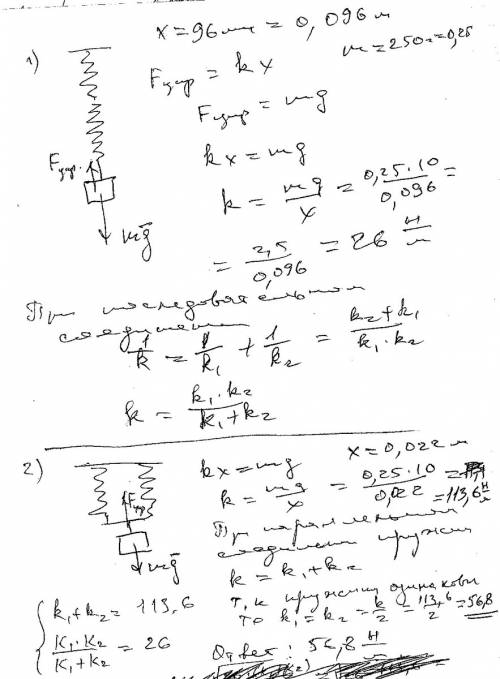 x = 96 мм = 0,096 м
m = 250 г = 0,25
1)
Fупр = kx
Fупр = mg
kx = mg
k = mg/x = 0,25·10/0,096 =
= 2,5/0,096 = 26 Н/м
Fупр.
mg
При последовательном
соединении
1/k = 1/k₁ + 1/k₂ = k₂+k₁/k₁·k₂
k = k₁·k₂/k₁+k₂
2)
x = 0,022 м
kx = mg
k = mg/x = 0,25·10/0,022 =
= 113,6 Н/м
Fупр
mg
При параллельном
соединении пружин
k = k₁+k₂
т.к пружины одинаковы
то k₁ = k₂ = k/2 = 113,6/2 = 56,8
k₁+k₂ = 113,6
k₁·k₂/k₁+k₂ = 26
Ответ: 56,8 Н/м